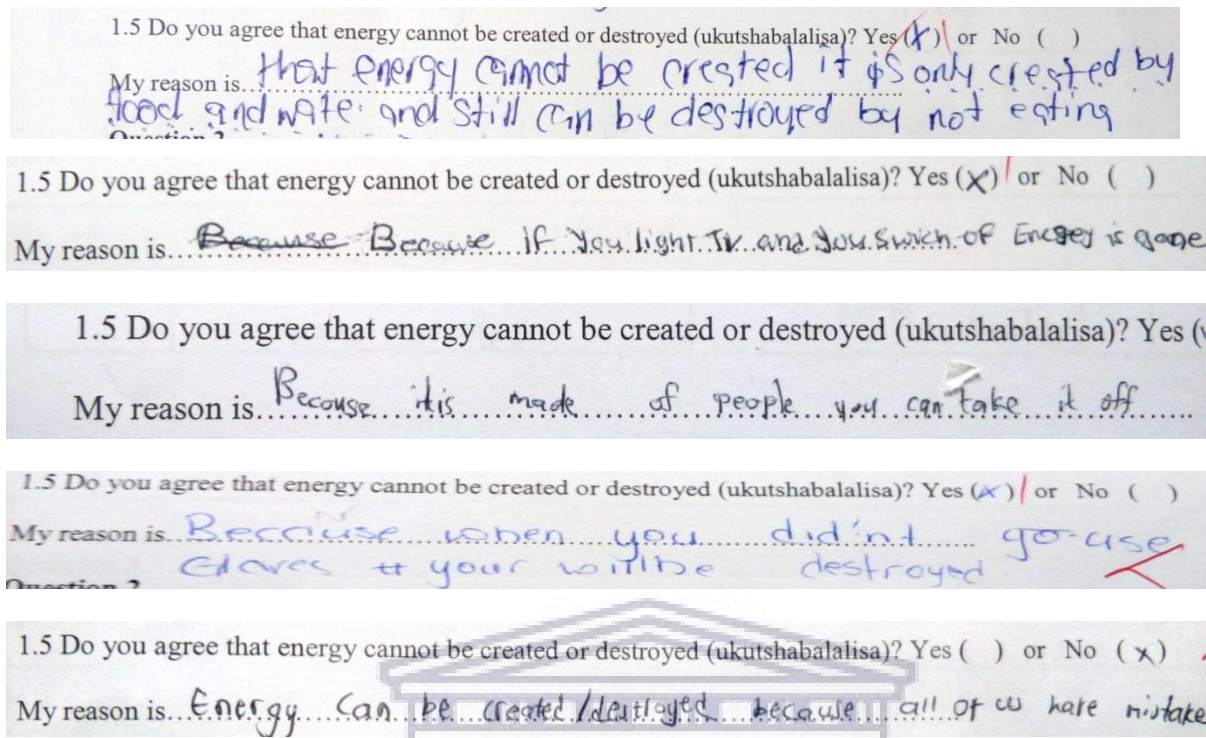 1.5 Do you agree that energy cannot be created or destroyed (ukutshabalalisa)? Yes (X) or No ( )
My reason is... that energy cannot be created it is only created by
food and wate. and still can be destroyed by not eating
Question 2
1.5 Do you agree that energy cannot be created or destroyed (ukutshabalalisa)? Yes (X) or No ( )
My reason is... Because Because if you light Tv and you swich of Energy is gone
1.5 Do you agree that energy cannot be created or destroyed (ukutshabalalisa)? Yes (
My reason is... Becouse it is made of people you can take it off
1.5 Do you agree that energy cannot be created or destroyed (ukutshabalalisa)? Yes (X) or No ( )
My reason is... Because when you did'nt go use
your will be destroyed
Question 2
1.5 Do you agree that energy cannot be created or destroyed (ukutshabalalisa)? Yes ( ) or No (X)
My reason is... Energy Can be created/destroyed because all of us have mistake